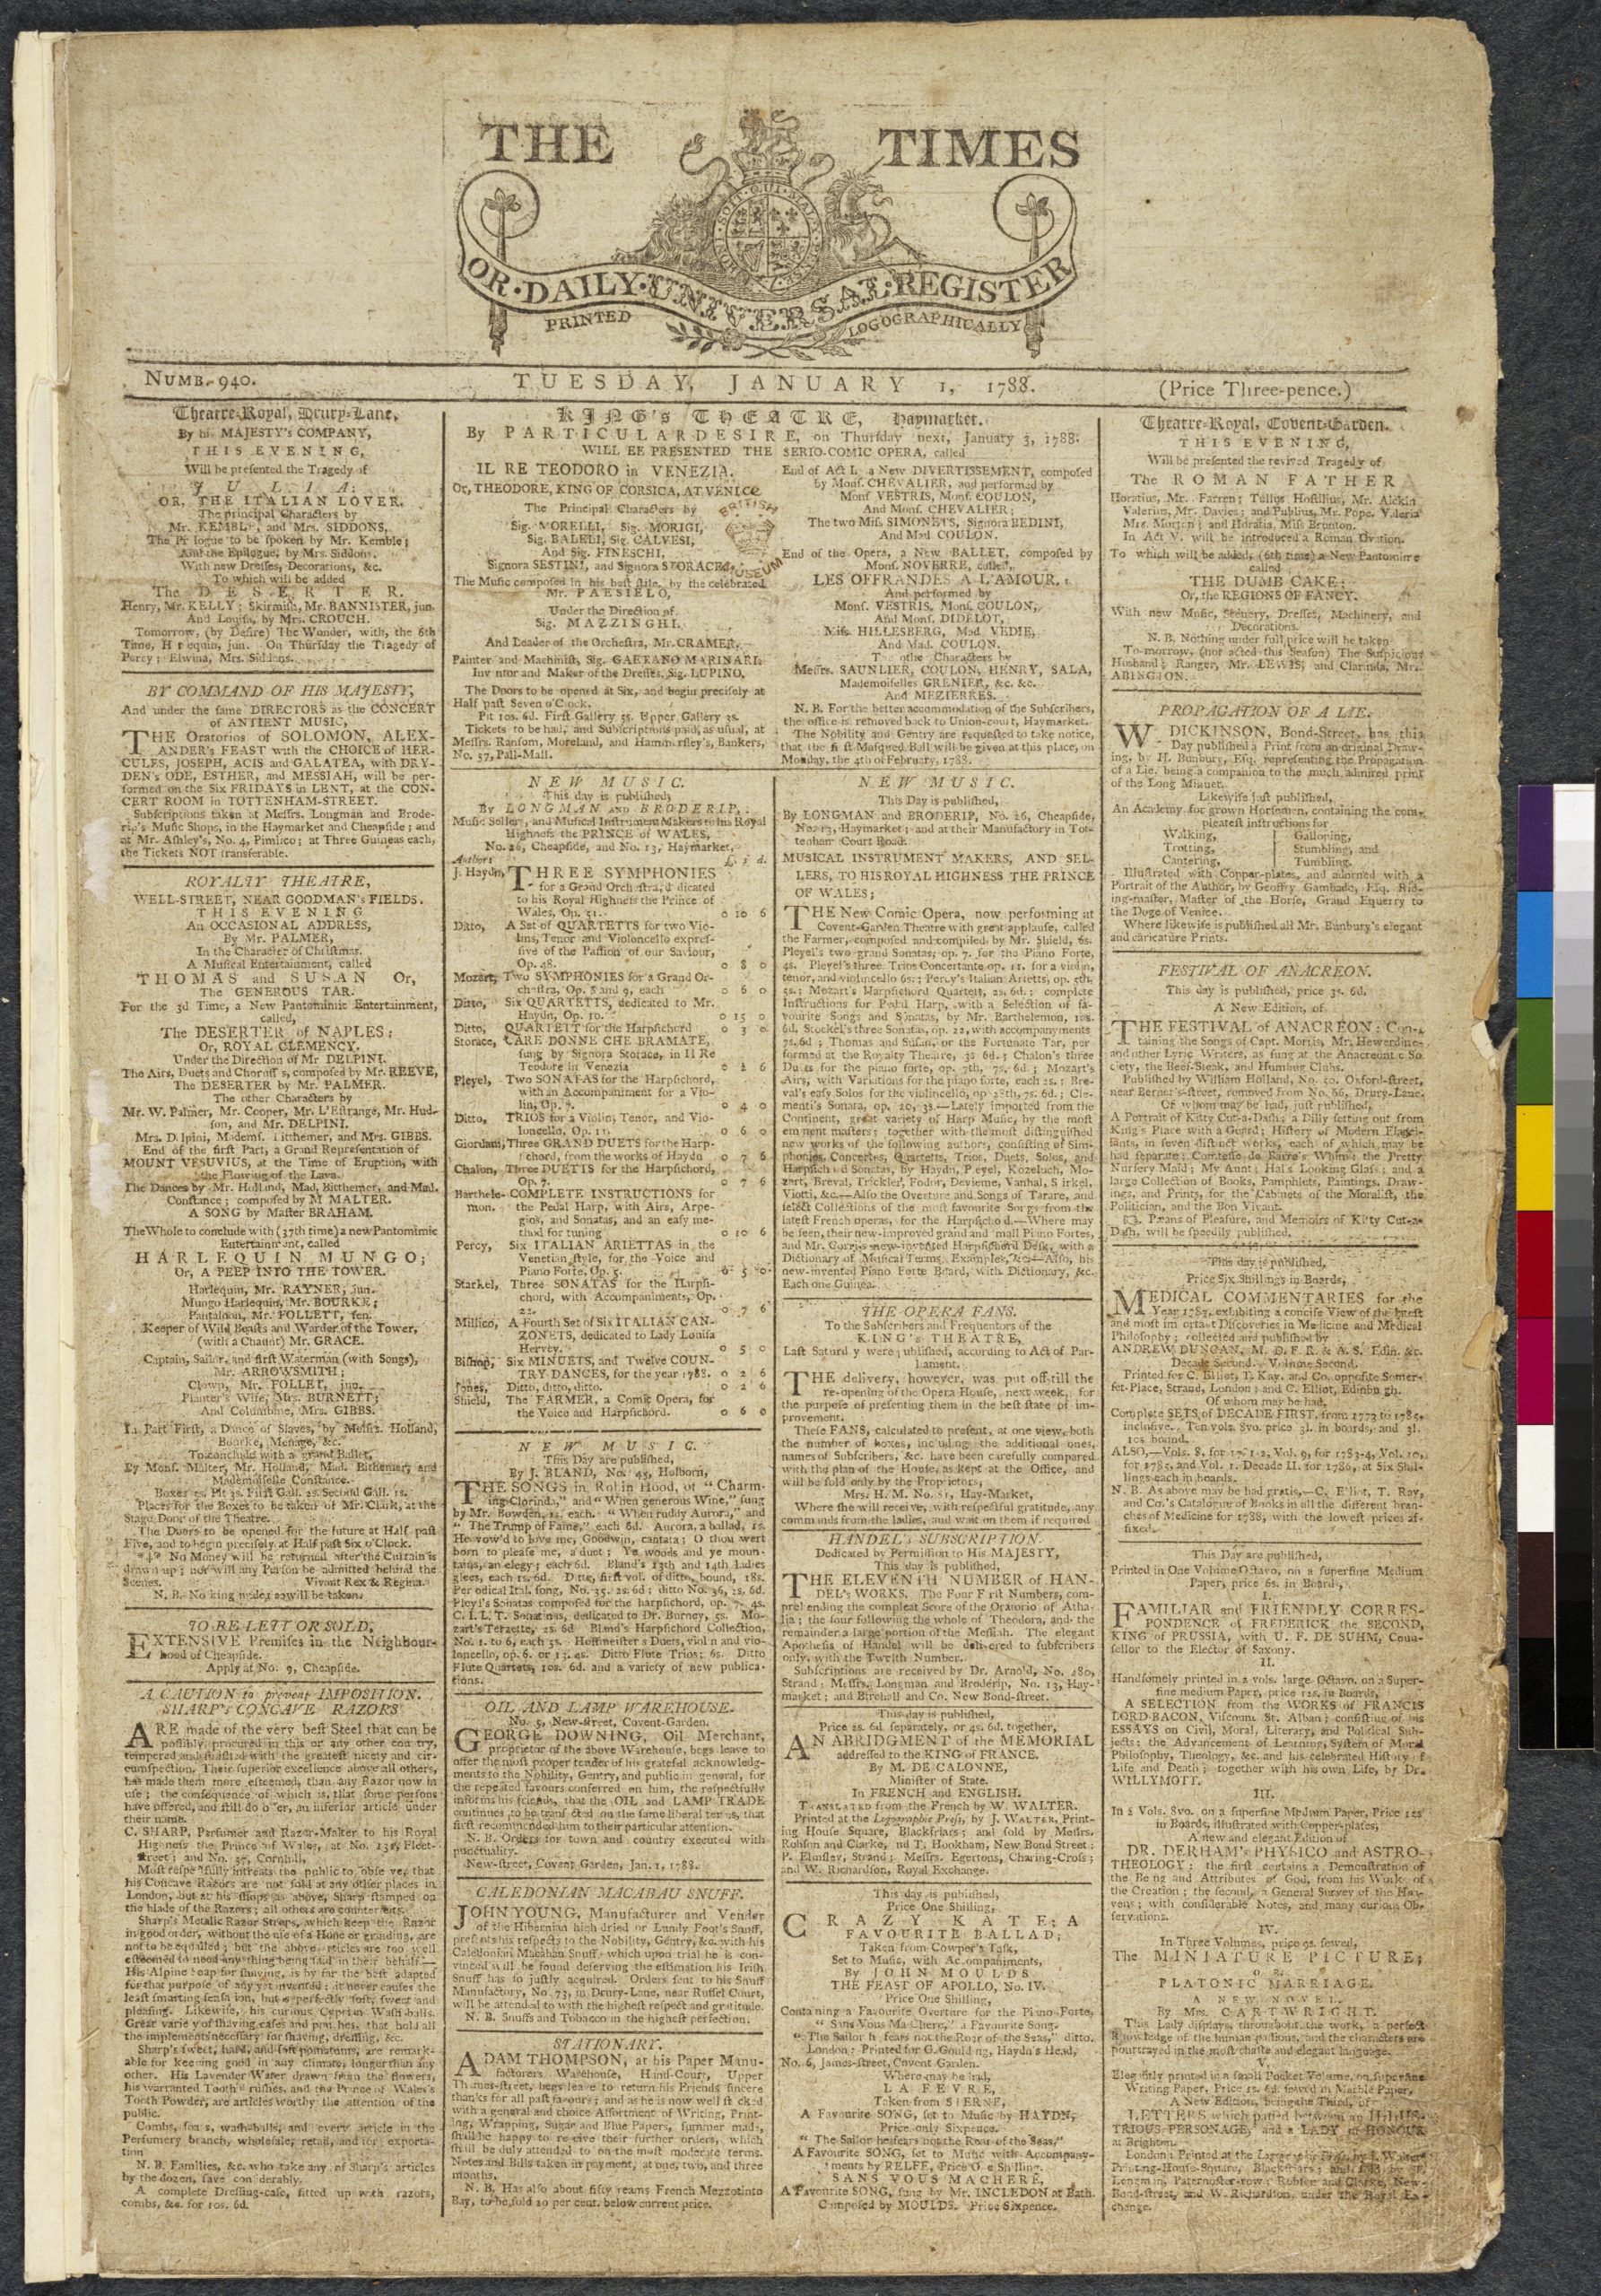 THE TIMES
OR DAILY UNIVERSAL REGISTER
PRINTED LOGOGRAPHICALLY
NUMB. 940.
TUESDAY, JANUARY 1, 1788.
(Price Three-pence.)
Theatre-Royal, Drury-Lane.
By his MAJESTY's COMPANY,
THIS EVENING,
Will be presented the Tragedy of
JULIA:
OR, THE ITALIAN LOVER.
The principal Characters by
Mr. KEMBLE, and Mrs. SIDDONS,
The Prologue to be spoken by Mr. Kemble;
And the Epilogue, by Mrs. Siddons.
With new Dresses, Decorations, &c.
To which will be added
The DESERTER.
Henry, Mr. KELLY; Skirmish, Mr. BANNISTER, jun.
And Louisa, by Mrs. CROUCH.
Tomorrow, (by Desire) The Wonder, with, the 6th
Time, Harlequin, jun. On Thursday the Tragedy of
Percy; Elwina, Mrs. Siddons.
BY COMMAND OF HIS MAJESTY,
And under the same DIRECTORS as the CONCERT
of ANTIENT MUSIC,
THE Oratorios of SOLOMON, ALEX-
ANDER's FEAST with the CHOICE of HER-
CULES, JOSEPH, ACIS and GALATEA, with DRY-
DEN's ODE, ESTHER, and MESSIAH, will be per-
formed on the Six FRIDAYS in LENT, at the CON-
CERT ROOM in TOTTENHAM-STREET.
Subscriptions taken at Messrs. Longman and Brode-
rip's Music Shops, in the Haymarket and Cheapside; and
at Mr. Ashley's, No. 4, Pimlico; at Three Guineas each,
the Tickets NOT transferable.
ROYALTY THEATRE,
WELL-STREET, NEAR GOODMAN's FIELDS.
THIS EVENING
An OCCASIONAL ADDRESS,
By Mr. PALMER,
In the Character of Christmas.
A Musical Entertainment, called
THOMAS and SUSAN Or,
The GENEROUS TAR.
For the 3d Time, a New Pantomimic Entertainment,
called,
The DESERTER of NAPLES;
Or, ROYAL CLEMENCY.
Under the Direction of Mr DELPINI.
The Airs, Duets and Chorusses, composed by Mr. REEVE,
The DESERTER by Mr. PALMER.
The other Characters by
Mr. W. Palmer, Mr. Cooper, Mr. L'Estrange, Mr. Hud-
son, and Mr. DELPINI.
Mrs. Delpini, Madems. Bitthemer, and Mrs. GIBBS.
End of the first Part, a Grand Representation of
MOUNT VESUVIUS, at the Time of Eruption, with
the Flowing of the Lava.
The Dances by Mr. Holland, Mad. Bitthemer, and Mad.
Constance; composed by M MALTER.
A SONG by Master BRAHAM.
The Whole to conclude with (37th time) a new Pantomimic
Entertainment, called
HARLEQUIN MUNGO;
Or, A PEEP INTO THE TOWER.
Harlequin, Mr. RAYNER, jun.
Mungo Harlequin, Mr. BOURKE;
Pantaloon, Mr. FOLLETT, sen.
Keeper of Wild Beasts and Warder of the Tower,
(with a Chaunt) Mr. GRACE.
Captain, Sailor, and first Waterman (with Songs),
Mr. ARROWSMITH;
Clown, Mr. FOLLET, jun.
Planter's Wife, Mrs. BURNETT;
And Columbine, Mrs. GIBBS.
In Part First, a Dance of Slaves, by Messrs. Holland,
Bourke, Menage, &c.
To conclude with a grand Ballet,
By Mons. Malter, Mr. Holland, Mad. Bithemer, and
Mademoiselle Constance.
Boxes 5s. Pit 3s. First Gall. 2s. Second Gall. 1s.
Places for the Boxes to be taken of Mr. Clark, at the
Stage Door of the Theatre.
The Doors to be opened for the future at Half past
Five, and to begin precisely at Half past Six o'Clock.
No Money will be returned after the Curtain is
drawn up; nor will any Person be admitted behind the
Scenes. Vivant Rex & Regina.
TO BE LETT OR SOLD,
EXTENSIVE Premises in the Neighbour-
hood of Cheapside.
Apply at No. 9, Cheapside.
A CAUTION to prevent IMPOSITION.
SHARP's CONCAVE RAZORS
ARE made of the very best Steel that can be
possibly procured in this or any other country,
tempered and finished with the greatest nicety and cir-
cumspection. Their superior excellence above all others,
has made them more esteemed, than any Razor now in
use; the consequence of which is, that some persons
have offered, and still do offer, an inferior article under
their name.
C. SHARP, Perfumer and Razor-Maker to his Royal
Highness the Prince of Wales, at No. 131, Fleet-
street; and No. 57, Cornhill,
Most respectfully intreats the public to observe, that
his Concave Razors are not sold at any other places in
London, but at his shops as above, Sharp stamped on
the blade of the Razors; all others are counterfeits.
Sharp's Metalic Razor Strops, which keep the Razor
in good order, without the use of a Hone or grinding, are
not to be equalled; but the above articles are too well
esteemed to need any thing being said in their behalf.—
His Alpine Soap for shaving, is by far the best adapted
for that purpose of any yet invented; it never causes the
least smarting sensation, but is perfectly soft, sweet and
pleasing. Likewise, his curious Cyprian Wash-balls.
Great variety of shaving cases and pouches, that hold all
the implements necessary for shaving, dressing, &c.
Sharp's sweet, hard, and soft pomatums, are remark-
able for keeping good in any climate, longer than any
other. His Lavender Water drawn from the flowers,
his warranted Tooth Brushes, and the Prince of Wales's
Tooth Powder, are articles worthy the attention of the
public.
Combs, soaps, wash-balls, and every article in the
Perfumery branch, wholesale, retail, and for exporta-
tion
N. B. Families, &c. who take any of Sharp's articles
by the dozen, save considerably.
A complete Dressing-case, fitted up with razors,
combs, &c. for 10s. 6d.
KING's THEATRE, Haymarket.
By PARTICULAR DESIRE, on Thursday next, January 3, 1788.
WILL BE PRESENTED THE SERIO-COMIC OPERA, called
IL RE TEODORO in VENEZIA.
Or, THEODORE, KING OF CORSICA, AT VENICE
The Principal Characters by
Sig. MORELLI, Sig. MORIGI,
Sig. BALELI, Sig. CALVESI,
And Sig. FINESCHI,
Signora SESTINI, and Signora STORACE.
The Music composed in his best stile, by the celebrated
Mr. PAESIELO,
Under the Direction of
Sig. MAZZINGHI.
And Leader of the Orchestra, Mr. CRAMER.
Painter and Machinist, Sig. GAETANO MARINARI.
Inventor and Maker of the Dresses, Sig. LUPINO,
The Doors to be opened at Six, and begin precisely at
Half past Seven o'Clock.
Pit 10s. 6d. First Gallery 5s. Upper Gallery 3s.
Tickets to be had, and Subscriptions paid, as usual, at
Messrs. Ransom, Moreland, and Hammersley's, Bankers,
No. 57, Pall-Mall.
BRITISH MUSEUM
End of Act I. a New DIVERTISSEMENT, composed
by Mons. CHEVALIER, and performed by
Mons. VESTRIS, Mons. COULON,
And Mons. CHEVALIER;
The two Miss SIMONETS, Signora BEDINI,
And Mad. COULON.
End of the Opera, a New BALLET, composed by
Mons. NOVERRE, called,
LES OFFRANDES A L'AMOUR.
And performed by
Mons. VESTRIS, Mons. COULON,
And Mons. DIDELOT,
Miss HILLESBERG, Mad. VEDIE,
And Mad. COULON.
The other Characters by
Messrs. SAUNLIER, COULON, HENRY, SALA,
Mademoiselles GRENIER, &c. &c.
And MEZIERRES.
N. B. For the better accommodation of the Subscribers,
the office is removed back to Union-court, Haymarket.
The Nobility and Gentry are requested to take notice,
that the first Masqued Ball will be given at this place, on
Monday, the 4th of February, 1788.
NEW MUSIC.
This day is published,
By LONGMAN AND BRODERIP,
Music Sellers, and Musical Instrument Makers to his Royal
Highness the PRINCE of WALES,
No. 26, Cheapside, and No. 13, Haymarket,
Authors £. s. d.
J. Haydn, THREE SYMPHONIES
for a Grand Orchestra, dedicated
to his Royal Highness the Prince of
Wales, Op. 51. 0 10 6
Ditto, A Set of QUARTETTS for two Vio-
lins, Tenor and Violoncello expres-
sive of the Passion of our Saviour,
Op. 48. 0 8 0
Mozart, Two SYMPHONIES for a Grand Or-
chestra, Op. 8 and 9, each 0 6 0
Ditto, Six QUARTETTS, dedicated to Mr.
Haydn, Op. 10. 0 15 0
Ditto, QUARTETT for the Harpsichord 0 3 0
Storace, CARE DONNE CHE BRAMATE,
sung by Signora Storace, in Il Re
Teodore in Venezia 0 2 6
Pleyel, Two SONATAS for the Harpsichord,
with an Accompaniment for a Vio-
lin, Op. 7. 0 4 0
Ditto, TRIOS for a Violin, Tenor, and Vio-
loncello, Op. 11. 0 6 0
Giordani, Three GRAND DUETS for the Harp-
sichord, from the works of Haydn 0 7 6
Chalon, Three DUETTS for the Harpsichord,
Op. 7. 0 7 6
Barthele- COMPLETE INSTRUCTIONS for
mon. the Pedal Harp, with Airs, Arpe-
gios, and Sonatas, and an easy me-
thod for tuning 0 10 6
Percy, Six ITALIAN ARIETTAS in the
Venetian style, for the Voice and
Piano Forte, Op. 5. 0 5 0
Starkel, Three SONATAS for the Harpsi-
chord, with Accompaniments, Op.
22. 0 7 6
Millico, A Fourth Set of Six ITALIAN CAN-
ZONETS, dedicated to Lady Louisa
Hervey. 0 5 0
Bishop, Six MINUETS, and Twelve COUN-
TRY DANCES, for the year 1788. 0 2 6
Jones, Ditto, ditto, ditto. 0 2 6
Shield, The FARMER, a Comic Opera, for
the Voice and Harpsichord. 0 6 0
NEW MUSIC.
This Day are published,
By J. BLAND, No. 45, Holborn,
THE SONGS in Robin Hood, of "Charm-
ing Clorinda," and "When generous Wine," sung
by Mr. Bowden, 1s. each. "When ruddy Aurora," and
"The Trump of Fame," each 6d. Aurora, a ballad, 1s.
He vow'd to love me, Goodwin, cantata; O thou wert
born to please me, a duet; Ye woods and ye moun-
tains, an elegy; each 6d. Bland's 13th and 14th ladies
glees, each 1s. 6d. Ditto, first vol. of ditto, bound, 18s.
Periodical Ital. song, No. 35. 2s. 6d; ditto No. 36, 2s, 6d.
Pleyl's Sonatas composed for the harpsichord, op. 7. 4s.
C. I. L. T. Sonatinas, dedicated to Dr. Burney, 5s. Mo-
zart's Terzette, 2s. 6d Bland's Harpsichord Collection,
No. 1. to 6, each 3s. Hoffmeister's Duets, violin and vio-
loncello, op. 6. or 13. 4s. Ditto Flute Trios; 6s. Ditto
Flute Quartets, 10s. 6d. and a variety of new publica-
tions.
OIL AND LAMP WAREHOUSE.
No. 5, New-street, Covent-Garden.
GEORGE DOWNING, Oil Merchant,
proprietor of the above Warehouse, begs leave to
offer the most proper tender of his grateful acknowledg-
ments to the Nobility, Gentry, and public in general, for
the repeated favours conferred on him, the respectfully
informs his friends, that the OIL and LAMP TRADE
continues to be transacted on the same liberal terms, that
first recommended him to their particular attention.
N. B. Orders for town and country executed with
punctuality.
New-street, Covent Garden, Jan. 1, 1788.
CALEDONIAN MACABAU SNUFF.
JOHN YOUNG, Manufacturer and Vender
of the Hibernian high dried or Lundy Foot's Snuff,
presents his respects to the Nobility, Gentry, &c. with his
Caledonian Macabau Snuff, which upon trial he is con-
vinced will be found deserving the estimation his Irish
Snuff has so justly acquired. Orders sent to his Snuff
Manufactory, No. 73, in Drury-Lane, near Russel Court,
will be attended to with the highest respect and gratitude.
N. B. Snuffs and Tobacco in the highest perfection.
STATIONARY.
ADAM THOMPSON, at his Paper Manu-
facturers Warehouse, Hand-Court, Upper
Thames-street, begs leave to return his Friends sincere
thanks for all past favours; and as he is now well stocked
with a general and choice Assortment of Writing, Print-
ing, Wrapping, Sugar and Blue Papers, summer made,
shall be happy to receive their further orders, which
shall be duly attended to on the most moderate terms.
Notes and Bills taken in payment, at one, two, and three
months.
N. B. Has also about fifty reams French Mezzotinto
Bay, to be sold 20 per cent. below current price.
NEW MUSIC.
This Day is published,
By LONGMAN and BRODERIP, No. 26, Cheapside,
No. 13, Haymarket; and at their Manufactory in Tot-
tenham Court Road.
MUSICAL INSTRUMENT MAKERS, AND SEL-
LERS, TO HIS ROYAL HIGHNESS THE PRINCE
OF WALES;
THE New Comic Opera, now performing at
Covent-Garden Theatre with great applause, called
the Farmer, composed and compiled by Mr. Shield, 6s.
Pleyel's two grand Sonatas, op. 7. for the Piano Forte,
4s. Pleyel's three Trios Concertante op. 11. for a violin,
tenor, and violincello 6s.; Percy's Italian Arietts, op. 5th,
5s.; Mozart's Harpsichord Quartett, 2s. 6d.; complete
Instructions for Pedal Harp, with a Selection of fa-
vourite Songs and Sonatas, by Mr. Barthelemon, 10s.
6d. Stockel's three Sonatas, op. 22, with accompanyments
7s. 6d; Thomas and Susan, or the Fortunate Tar, per-
formed at the Royalty Theatre, 3s 6d.; Chalon's three
Duets for the piano forte, op. 7th, 7s. 6d.; Mozart's
Airs, with Variations for the piano forte, each 2s.; Bre-
val's easy Solos for the violincello, op 28th, 7s. 6d.; Cle-
menti's Sonata, op. 20, 3s.—Lately imported from the
Continent, great variety of Harp Music, by the most
eminent masters; together with the most distinguished
new works of the following authors, consisting of Sim-
phonies, Concertos, Quartetts, Trios, Duets, Solos, and
Harpsichord Sonatas, by Haydn, Pleyel, Kozeluch, Mo-
zart, Breval, Trickler, Fodor, Devieme, Vanhal, Sirkel,
Viotti, &c.—Also the Overture and Songs of Tarare, and
select Collections of the most favourite Songs from the
latest French operas, for the Harpsichord.—Where may
be seen, their new-improved grand and small Piano Fortes,
and Mr. Corri's new-invented Harpsichord Desk, with a
Dictionary of Musical Terms, Examples, &c.—Also, his
new-invented Piano Forte Board, with Dictionary, &c.
Each one Guinea.
THE OPERA FANS.
To the Subscribers and Frequentors of the
KING's THEATRE,
Last Saturday were published, according to Act of Par-
liament.
THE delivery, however, was put off till the
re-opening of the Opera House, next week, for
the purpose of presenting them in the best state of im-
provement.
These FANS, calculated to present, at one view, both
the number of boxes, including the additional ones,
names of Subscribers, &c. have been carefully compared
with the plan of the House, as kept at the Office, and
will be sold only by the Proprietors,
Mrs. H. M. No. 81, Hay-Market,
Where she will receive, with respectful gratitude, any
commands from the ladies, and wait on them if required
HANDEL's SUBSCRIPTION.
Dedicated by Permission to His MAJESTY,
This day is published,
THE ELEVENTH NUMBER of HAN-
DEL's WORKS. The Four First Numbers, com-
prehending the compleat Score of the Oratorio of Atha-
lia; the four following the whole of Theodora, and the
remainder a large portion of the Messiah. The elegant
Apotheosis of Handel will be delivered to subscribers
only, with the Twelth Number.
Subscriptions are received by Dr. Arnold, No. 480,
Strand; Messrs. Longman and Broderip, No. 13, Hay-
market; and Birchall and Co. New Bond-street.
This day is published,
Price 2s. 6d separately, or 4s. 6d. together,
AN ABRIDGMENT of the MEMORIAL
addressed to the KING of FRANCE.
By M. DE CALONNE,
Minister of State.
In FRENCH and ENGLISH.
TRANSLATED from the French by W. WALTER.
Printed at the Logographic Press, by J. WALTER, Print-
ing House Square, Blackfriars; and sold by Messrs.
Robson and Clarke, and T. Hookham, New Bond Street;
P. Elmsley, Strand; Messrs. Egertons, Charing-Cross;
and W. Richardson, Royal Exchange.
This day is published,
Price One Shilling,
CRAZY KATE; A
FAVOURITE BALLAD;
Taken from Cowper's Task,
Set to Music, with Accompaniments,
By JOHN MOULDS
THE FEAST OF APOLLO, No. IV.
Price One Shilling,
Containing a Favourite Overture for the Piano-Forte,
"Sans Vous Ma Chere," a Favourite Song.
"The Sailor he fears not the Roar of the Seas," ditto.
London: Printed for G. Goulding, Haydn's Head,
No. 6, James-street, Covent-Garden.
Where may be had,
LA FEVRE,
Taken from STERNE,
A Favourite SONG, set to Music by HAYDN,
Price only Sixpence.
"The Sailor he fears not the Roar of the Seas,"
A Favourite SONG, set to Music with Accompany-
ments by RELFE, Price One Shilling.
SANS VOUS MA CHERE,
A Favourite SONG, sung by Mr. INCLEDON at Bath.
Composed by MOULDS. Price Sixpence.
Theatre-Royal, Covent-Garden.
THIS EVENING,
Will be presented the revived Tragedy of
The ROMAN FATHER
Horatius, Mr. Farren; Tullus Hostilius, Mr. Aickin
Valerius, Mr. Davies; and Publius, Mr. Pope. Valeria
Mrs. Morton; and Horatia, Miss Brunton.
In Act V. will be introduced a Roman Ovation.
To which will be added, (6th time) a New Pantomime
called
THE DUMB CAKE;
Or, the REGIONS OF FANCY.
With new Music, Scenery, Dresses, Machinery, and
Decorations.
N. B. Nothing under full price will be taken
To-morrow, (not acted this Season) The Suspicious
Husband; Ranger, Mr. LEWIS; and Clarinda, Mrs.
ABINGTON.
PROPAGATION OF A LIE.
W. DICKINSON, Bond-Street, has this
Day published a Print from an original Draw-
ing, by H. Bunbury, Esq. representing the Propagation
of a Lie, being a companion to the much admired print
of the Long Minuet.
Likewise just published,
An Academy for grown Horsemen, containing the com-
pleatest instructions for
Walking, Galloping,
Trotting, Stumbling, and
Cantering, Tumbling.
Illustrated with Copper-plates, and adorned with a
Portrait of the Author, by Geoffry Gambado, Esq. Rid-
ing-master, Master of the Horse, Grand Equerry to
the Doge of Venice.
Where likewise is published all Mr. Bunbury's elegant
and caricature Prints.
FESTIVAL OF ANACREON.
This day is published, price 3s. 6d.
A New Edition, of
THE FESTIVAL of ANACREON: Con-
taining the Songs of Capt. Morris, Mr. Hewerdine,
and other Lyric Writers, as sung at the Anacreontic So-
ciety, the Beef-Steak, and Humbug Clubs.
Published by William Holland, No. 50. Oxford-street,
near Berner's-street, removed from No. 66, Drury-Lane.
Of whom may be had, just published,
A Portrait of Kitty Cut-a-Dash; a Dilly setting out from
King's Place with a Guard; History of Modern Flagel-
lants, in seven distinct works, each of which may be
had separate; Comtesse de Barre's Whim; the Pretty
Nursery Maid; My Aunt; Hal's Looking Glass; and a
large Collection of Books, Pamphlets, Paintings, Draw-
ings, and Prints, for the Cabinets of the Moralist, the
Politician, and the Bon Vivant.
Pæans of Pleasure, and Memoirs of Kitty Cut-a-
Dash, will be speedily published.
This day is published,
Price Six Shillings in Boards,
MEDICAL COMMENTARIES for the
Year 1787, exhibiting a concise View of the latest
and most important Discoveries in Medicine and Medical
Philosophy; collected and published by
ANDREW DUNCAN, M. D. F. R. & A. S. Edin. &c.
Decade Second. Volume Second.
Printed for C. Elliot, T. Kay, and Co. opposite Somer-
set-Place, Strand, London; and C. Elliot, Edinburgh.
Of whom may be had,
Complete SETS of DECADE FIRST, from 1773 to 1785,
inclusive. Ten vols. 8vo. price 3l. in boards, and 3l.
10s bound.
ALSO,—Vols. 8, for 1781-2, Vol. 9, for 1783-4, Vol. 10,
for 1785, and Vol. 1. Decade II. for 1786, at Six Shil-
lings each in boards.
N. B. As above may be had gratis,—C. Elliot, T. Kay,
and Co.'s Catalogue of Books in all the different bran-
ches of Medicine for 1788, with the lowest prices af-
fixed.
This Day are published,
Printed in One Volume Octavo, on a superfine Medium
Paper, price 6s. in Boards,
I.
FAMILIAR and FRIENDLY CORRES-
PONDENCE of FREDERICK the SECOND,
KING of PRUSSIA, with U. F. DE SUHM, Coun-
sellor to the Elector of Saxony.
II.
Handsomely printed in 2 vols. large Octavo, on a Super-
fine medium Paper, price 12s. in Boards,
A SELECTION from the WORKS of FRANCIS
LORD BACON, Viscount St. Alban; consisting of his
ESSAYS on Civil, Moral, Literary, and Political Sub-
jects; the Advancement of Learning, System of Moral
Philosophy, Theology, &c. and his celebrated History of
Life and Death; together with his own Life, by Dr.
WILLYMOTT.
III.
In 2 Vols. 8vo. on a superfine Medium Paper, Price 12s
in Boards, illustrated with Copper-plates,
A new and elegant Edition of
DR. DERHAM's PHYSICO and ASTRO-
THEOLOGY: the first contains a Demonstration of
the Being and Attributes of God, from his Works of
the Creation; the second, a General Survey of the Hea-
vens; with considerable Notes, and many curious Ob-
servations.
IV.
In Three Volumes, price 9s. sewed,
The MINIATURE PICTURE;
OR,
PLATONIC MARRIAGE.
A NEW NOVEL.
By Mrs. CARTWRIGHT.
This Lady displays, throughout the work, a perfect
knowledge of the human passions, and the characters are
pourtrayed in the most chaste and elegant language.
V.
Elegantly printed in a small Pocket Volume, on superfine
Writing Paper, Price 2s. 6d. sewed in Marble Paper,
A New Edition, being the Third, of
LETTERS which passed between an ILLUS-
TRIOUS PERSONAGE, and a LADY of HONOUR
at Brighton.
London: Printed at the Logographic Press, by J. Walter
Printing-House-Square, Blackfriars; and sold by T.
Longman, Paternoster-row; Robson and Clarke, New-
Bond-street, and W. Richardson, under the Royal Ex-
change.